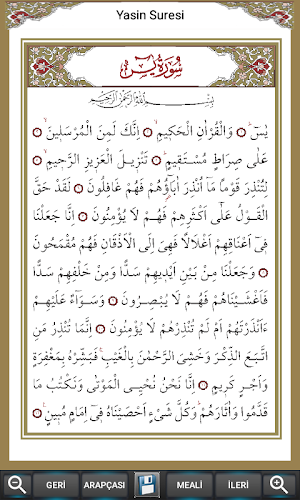 Yasin Suresi
سُورَةُ يٰسٓ
بِسْمِ اللّٰهِ الرَّحْمٰنِ الرَّحِيمِ
يٰسٓ ۞ وَالْقُرْاٰنِ الْحَكِيمِ ۞ اِنَّكَ لَمِنَ الْمُرْسَلِينَ ۞
عَلٰى صِرَاطٍ مُسْتَقِيمٍ ۞ تَنْزِيلَ الْعَزِيزِ الرَّحِيمِ ۞
لِتُنْذِرَ قَوْمًا مَٓا اُنْذِرَ اٰبَٓاؤُ۬هُمْ فَهُمْ غَافِلُونَ ۞ لَقَدْ حَقَّ
الْقَوْلُ عَلٰٓى اَكْثَرِهِمْ فَهُمْ لَا يُؤْمِنُونَ ۞ اِنَّا جَعَلْنَا
فِٓى اَعْنَاقِهِمْ اَغْلَالًا فَهِىَ اِلَى الْاَذْقَانِ فَهُمْ مُقْمَحُونَ
۞ وَجَعَلْنَا مِنْ بَيْنِ اَيْدِيهِمْ سَدًّا وَمِنْ خَلْفِهِمْ سَدًّا
فَاَغْشَيْنَاهُمْ فَهُمْ لَا يُبْصِرُونَ ۞ وَسَوَٓاءٌ عَلَيْهِمْ
ءَاَنْذَرْتَهُمْ اَمْ لَمْ تُنْذِرْهُمْ لَا يُؤْمِنُونَ ۞ اِنَّمَا تُنْذِرُ مَنِ
اتَّبَعَ الذِّكْرَ وَخَشِىَ الرَّحْمٰنَ بِالْغَيْبِ فَبَشِّرْهُ بِمَغْفِرَةٍ
وَاَجْرٍ كَرِيمٍ ۞ اِنَّا نَحْنُ نُحْيِى الْمَوْتٰى وَنَكْتُبُ مَا
قَدَّمُوا وَاٰثَارَهُمْ وَكُلَّ شَىْءٍ اَحْصَيْنَاهُ فِٓى اِمَامٍ مُبِينٍ ۞
GERİ ARAPÇASI MEALİ İLERİ